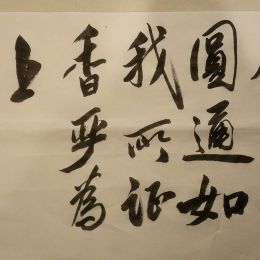 圓通如
我所証
香严為
上